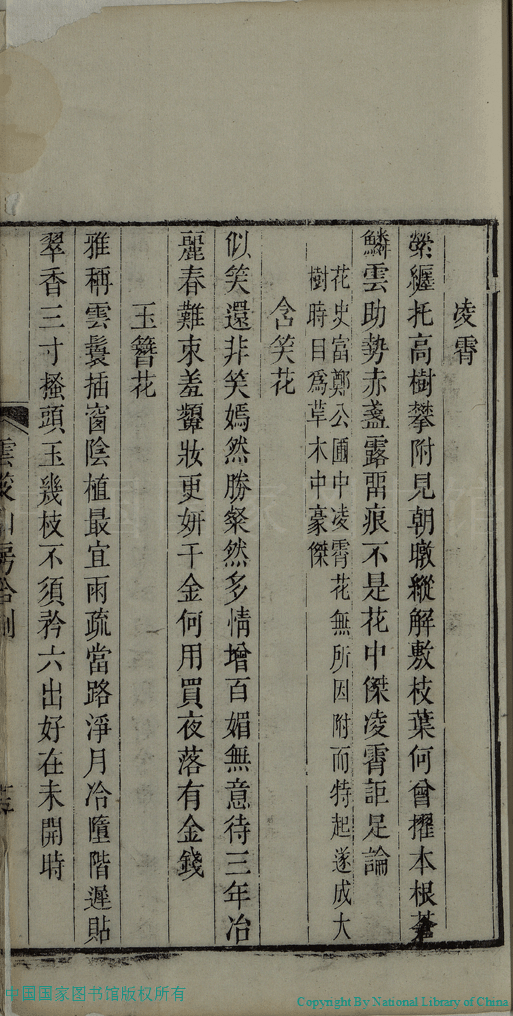 凌霄
縈纏托高樹攀附見朝暾縱解敷枝葉何曾擢本根蒼
鱗雲助勢赤盞露畱痕不是花中傑凌霄詎足論
花史富鄭公圃中凌霄花無所因附而特起遂成大
樹時目爲草木中豪傑
含笑花
似笑還非笑嫣然勝粲然多情增百媚無意待三年冶
麗春難束羞顰妝更妍千金何用買夜落有金錢
玉簪花
雅稱雲鬟插窗陰植最宜雨疏當路淨月冷墮階遲貼
翠香三寸搔頭玉幾枝不須矜六出好在未開時
中国国家图书馆版权所有
Copyright By National Library of China